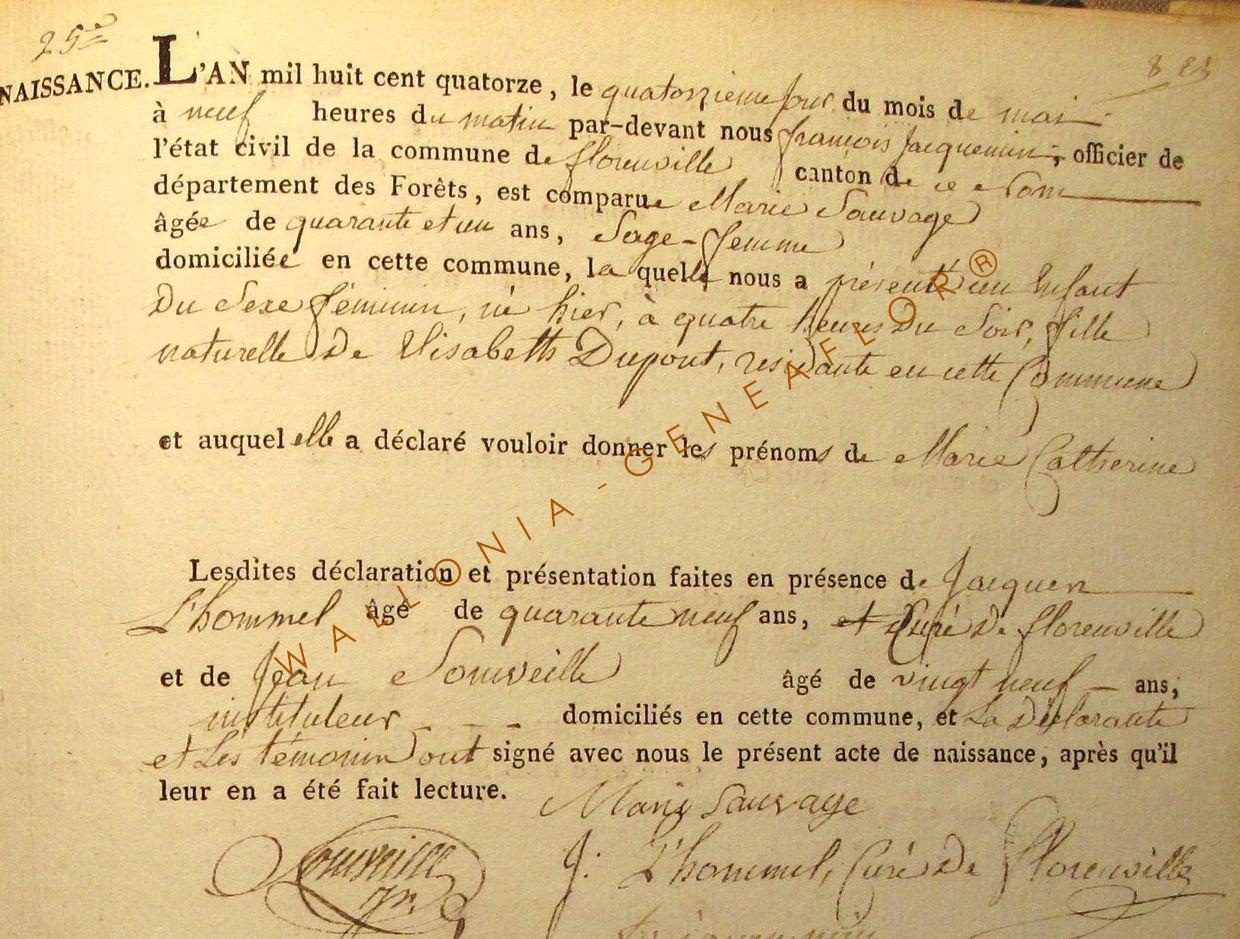 25e
NAISSANCE.
L'AN mil huit cent quatorze, le quatorzieme jour du mois de mai
à neuf heures du matin par-devant nous françois Jacquemin, officier de
l'état civil de la commune de florenville canton de
département des Forêts, est comparue Marie Sauvage
âgée de quarante et un ans, Sage-femme
domiciliée en cette commune, la quelle nous a présenté un Enfant
Du Sexe féminin, né hier, à quatre heures Du Soir, fille
naturelle De Elisabeth Dupont, residante en cette Commune
et auquel elle a déclaré vouloir donner les prénoms de Marie Catherine
Lesdites déclaration et présentation faites en présence de Jacques
L'hommel âgé de quarante neuf ans, Curé De florenville
et de Jean Souveille âgé de vingt neuf ans,
instituteur domiciliés en cette commune, et La Déclarante
et Les témoins ont signé avec nous le présent acte de naissance, après qu'il
leur en a été fait lecture.
Marie Sauvage
Souveille
J: L'hommel, Curé De Florenville
WALLONIA-GENEAFLOR®